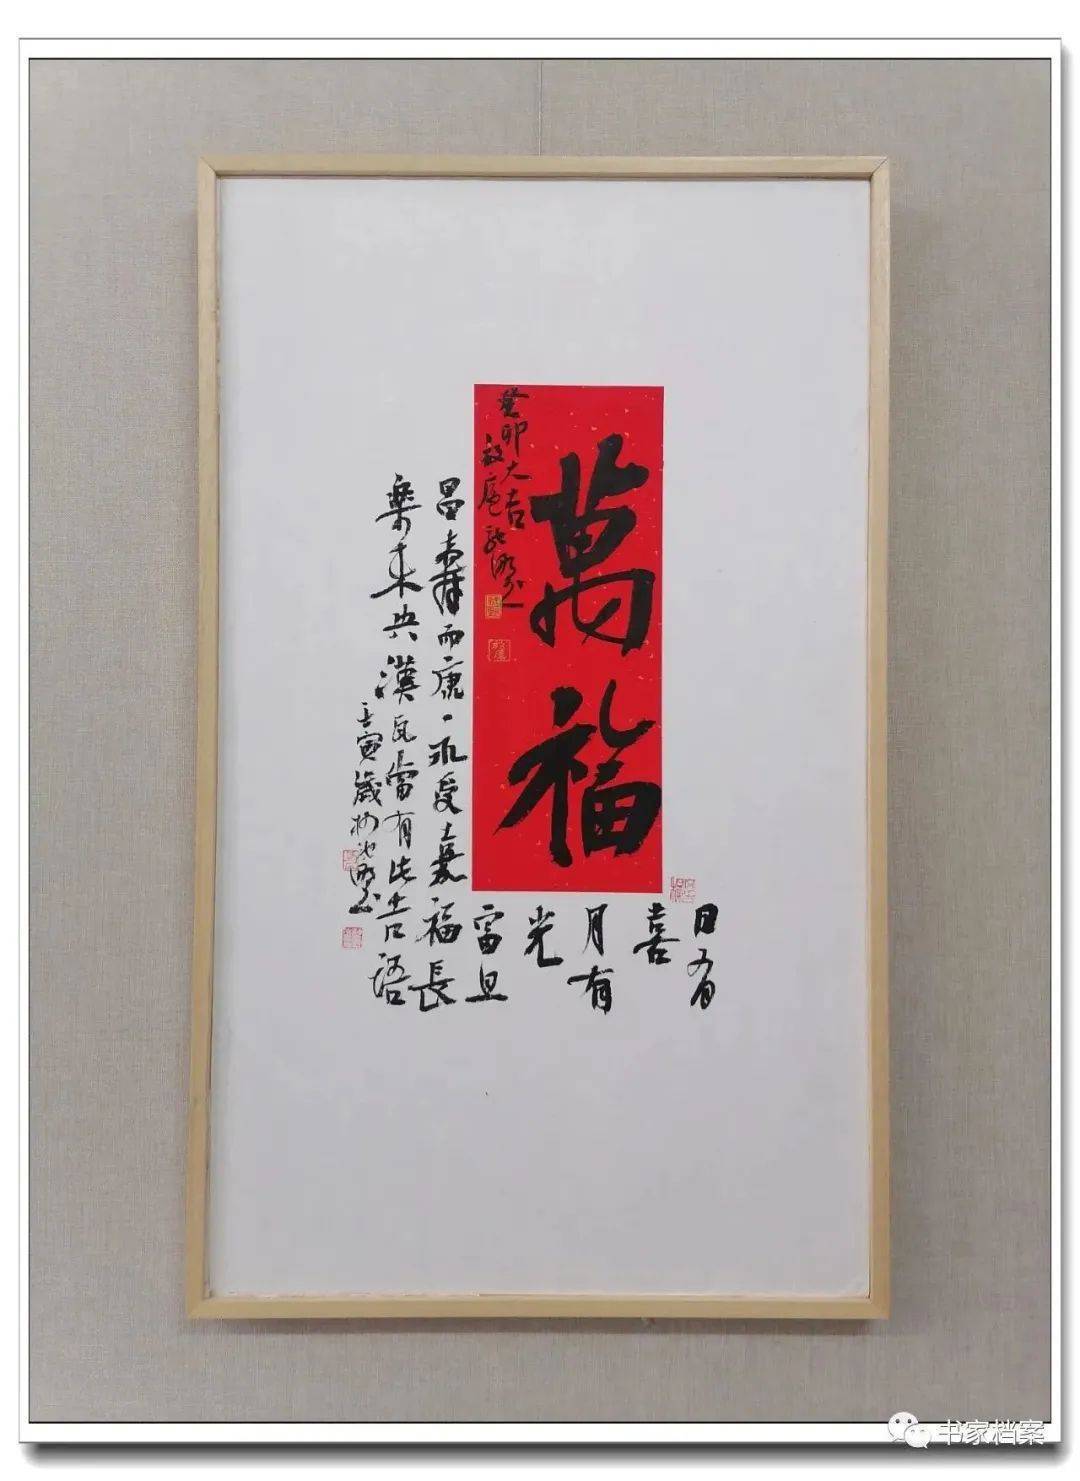 萬福
癸卯大吉
日有
喜
月有
光
富且
昌壽而康永受嘉福長
樂未央漢瓦當有此吉語
壬寅歲杪
书家档案